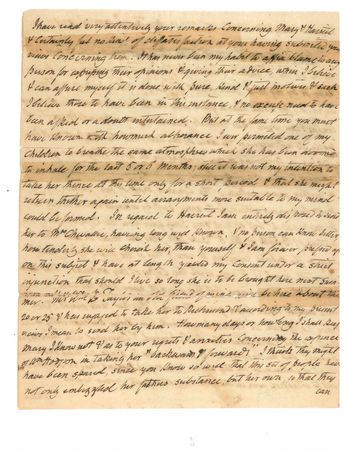 I have read very attentively your remarks Concerning Mary & Harriet
& Certainly felt no kind of dissatisfaction at your having expressed your
views Concerning them. It has never been my habit to affix blame to any
person for expressing their opinions & giving their advice, when I believe
& can assure myself it is done with pure, kind & just motives & such
I believe those to have been in this instance & no excuse need to have
been asked or a doubt entertained. But at the same time you must
have known with how much abhorrence I ever permitted one of my
Children to breathe the same atmosphere which she has been
to inhale for the last 5 or 6 months, still it was not my intention to
take her thence at this time only for a short period & that she might
return thither again until arrangements more suitable to my mind
could be formed. In regard to Harriet I am entirely disposed to send
her to Mrs having long well known, & no person can know better
how tenderly she will cherish her, than yourself & I am
on this subject & have at length yielded my Consent under a strict
injunction that should I live so long she is to be brought here next
from
mer. This will be here about the
20 or 25 & has engaged to take her to Piedmont & according to my present
views I mean to send her by him. How many days or how long I shall keep
Mary I know not & as to your regrets & anxieties Concerning the expense
of in taking her "backwards & forwards" I think they might
have been spared, since you know so well that this set of people have
not only embezzled her father's substance but her own is that they
can